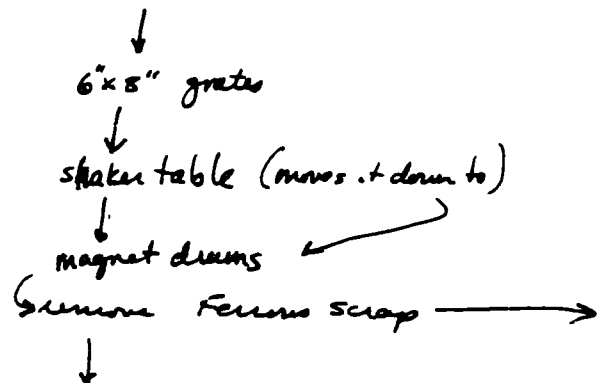 6"x 8" grates
shaker table (moves it down to)
magnet drums
remove Ferrous scrap